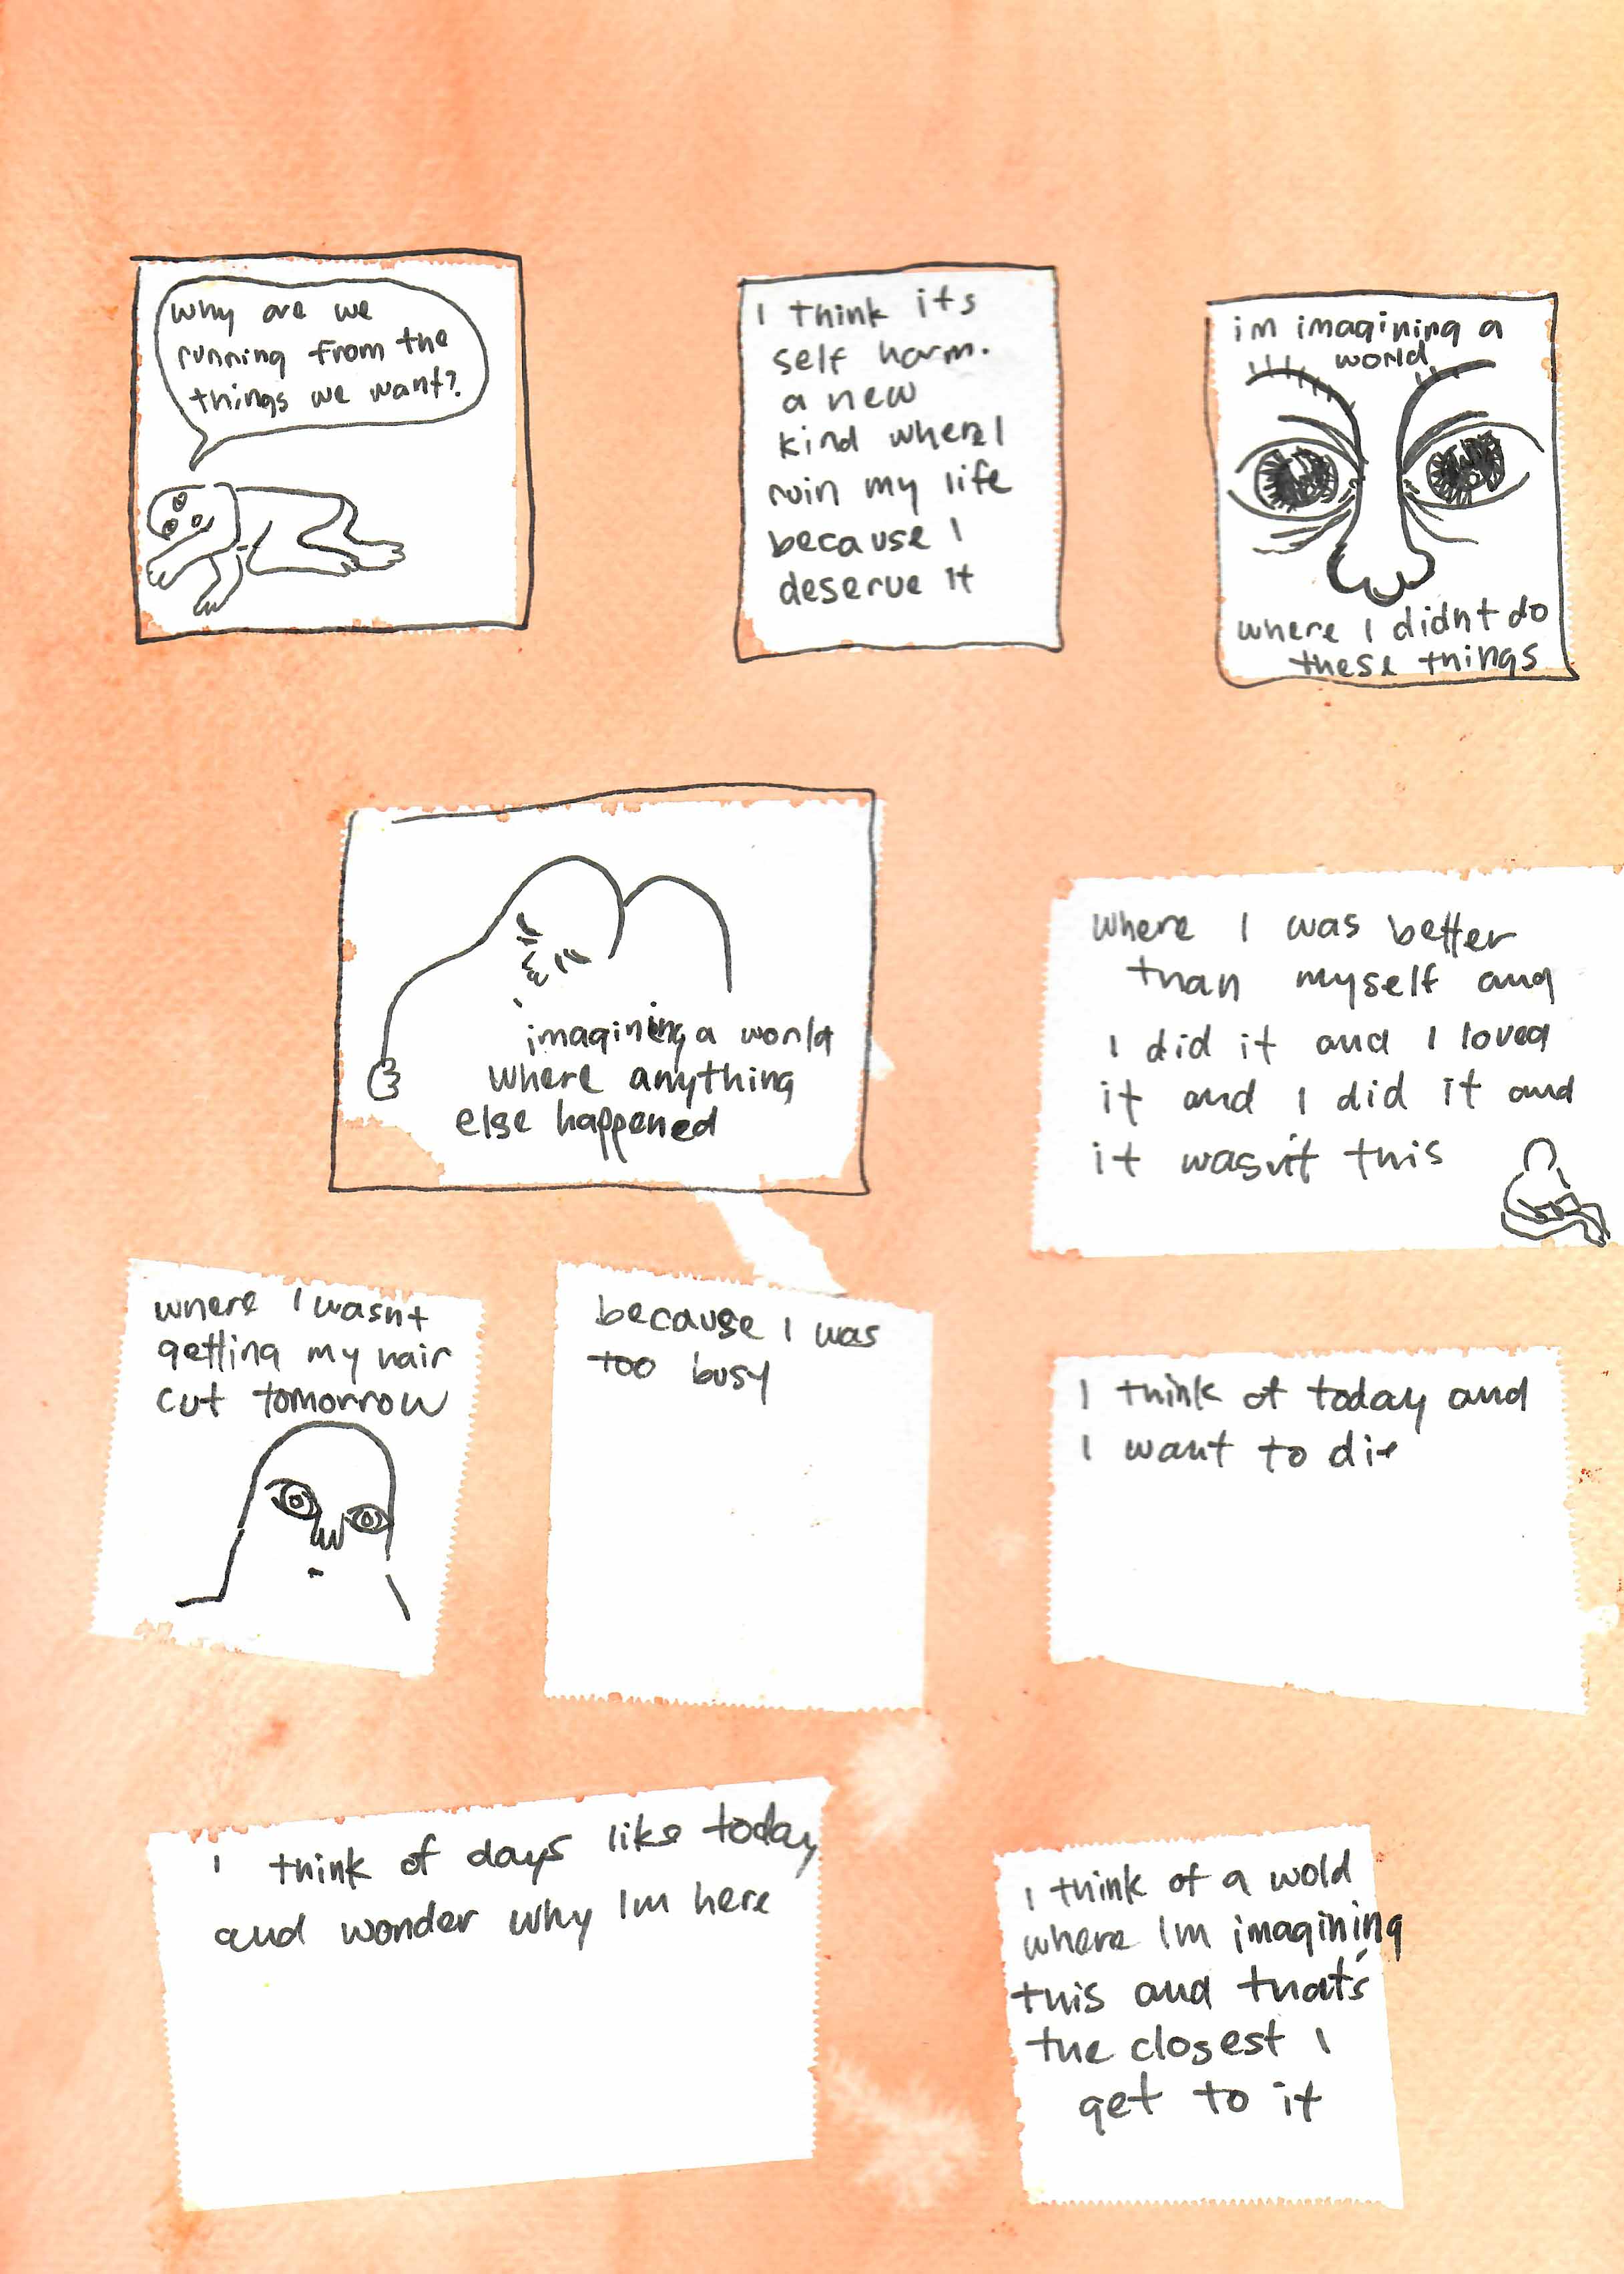 why are we
running from the
things we want?
I think its
self harm.
a new
kind where I
ruin my life
because I
deserve it
im imagining a
world
where I didnt do
these things
imagining a world
where anything
else happened
where I was better
than myself and
I did it and I loved
it and I did it and
it wasn't this
where I wasnt
getting my hair
cut tomorrow
because I was
too busy
I think of today and
I want to die
I think of days like today
and wonder why Im here
I think of a wold
where Im imagining
this and that's
the closest I
get to it